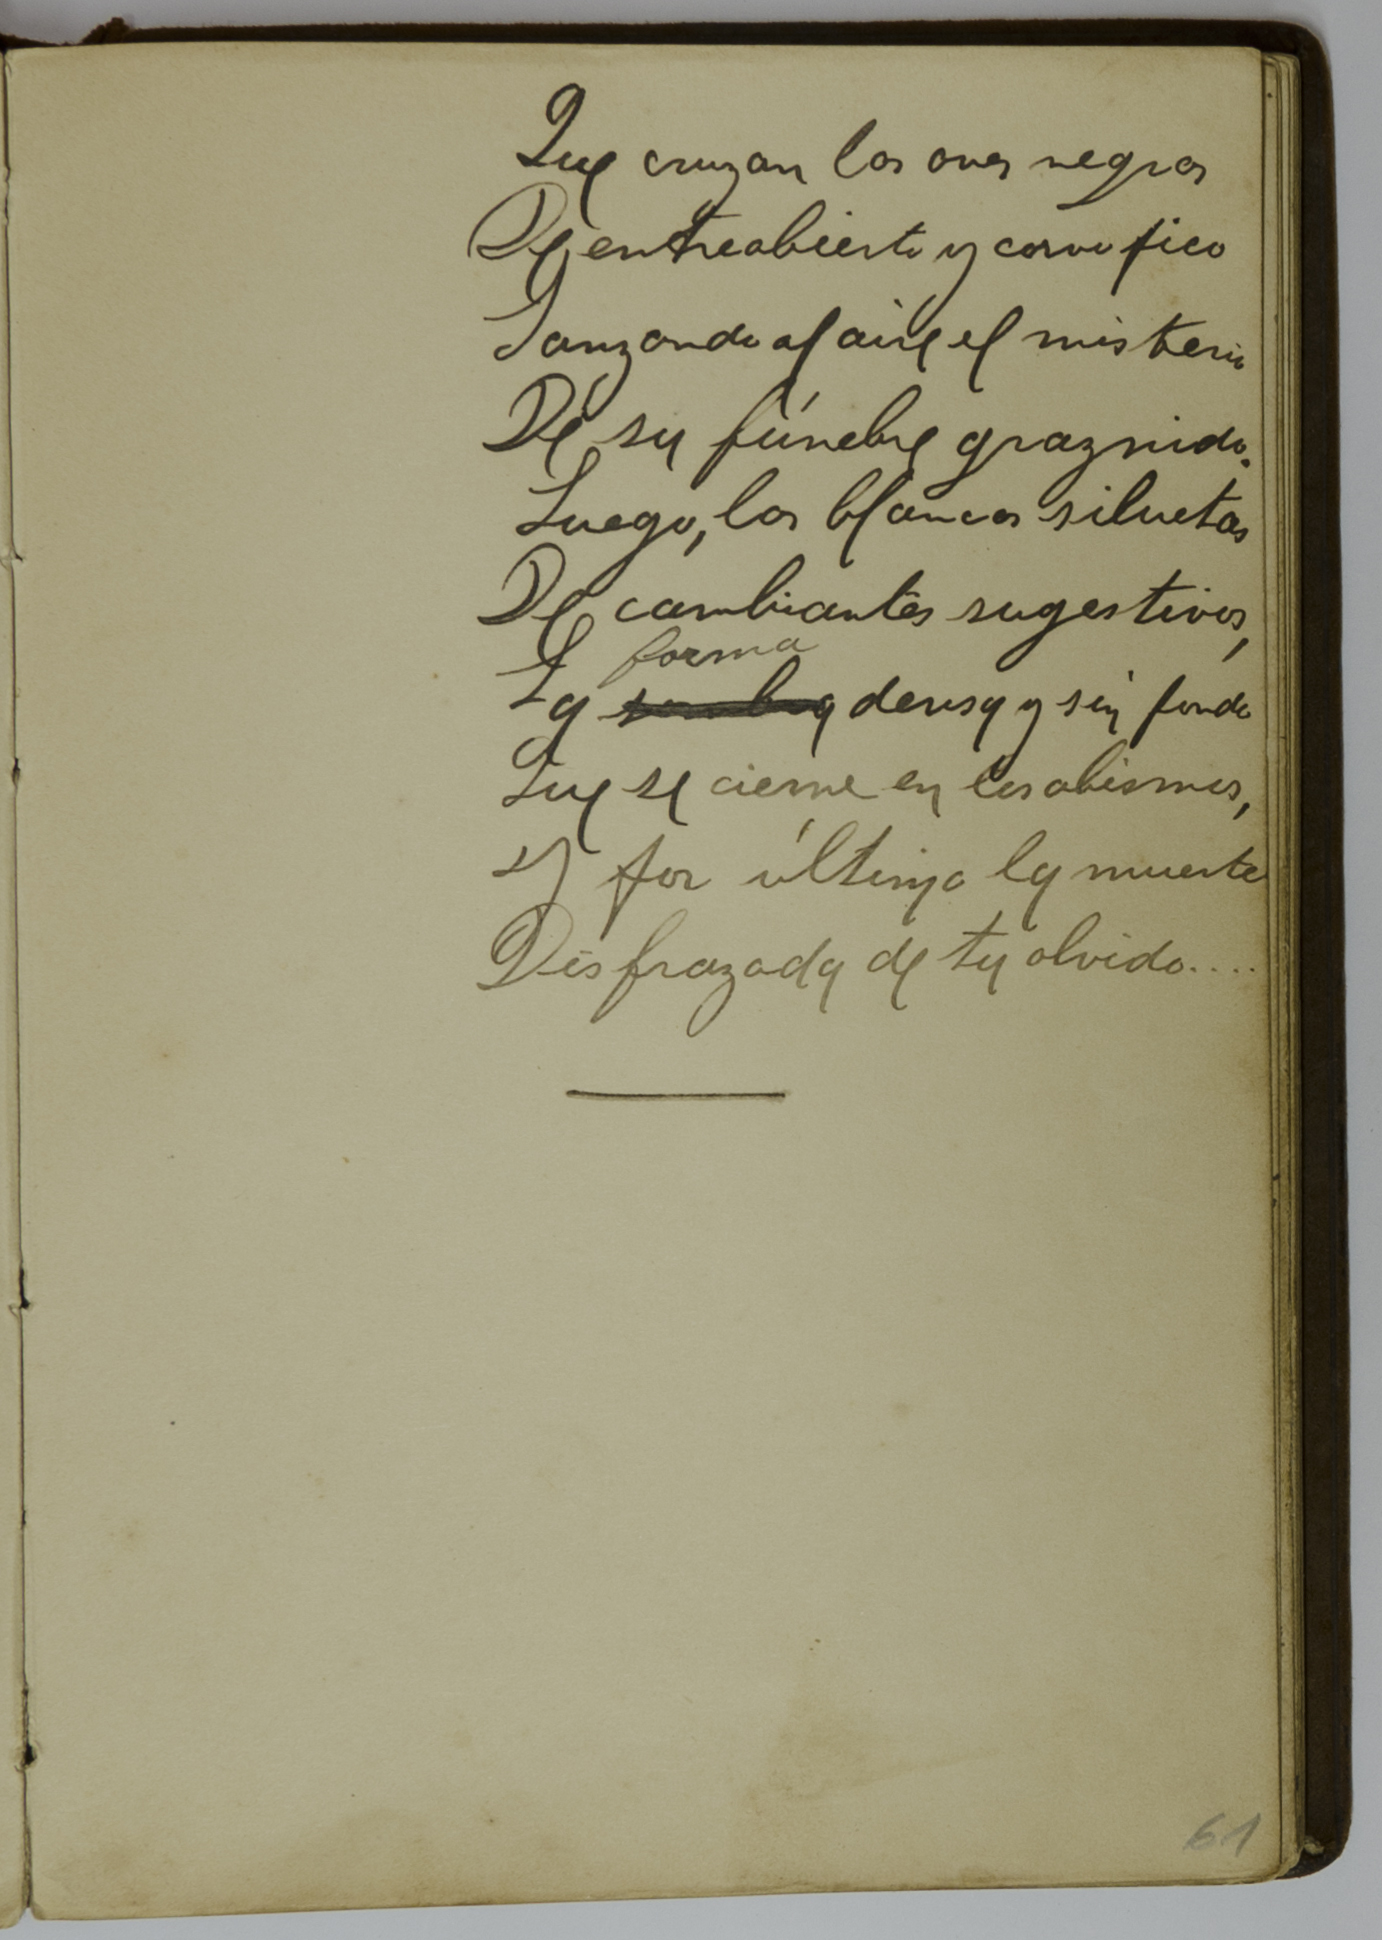 Que cruzan las aves negras
De entreabierto y corvo pico
Lanzando al aire el misterio
De su fúnebre graznido.
Luego, las blancas siluetas
De cambiantes sugestivos,
forma
La sombra densa y sin fondo
Que se cierne en los abismos,
Y por último la muerte
Disfrazada de tu olvido....
61